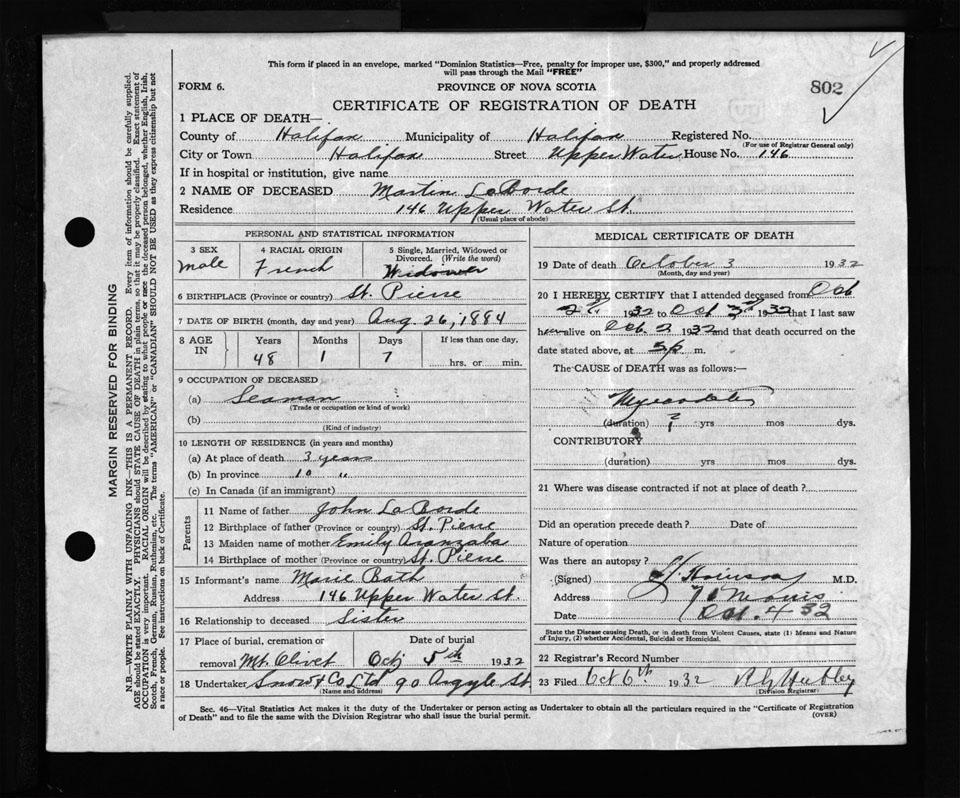 This form if placed in an envelope, marked "Dominion Statistics—Free, penalty for improper use, $300," and properly addressed
will pass through the Mail "FREE"
FORM 6.
PROVINCE OF NOVA SCOTIA
802
CERTIFICATE OF REGISTRATION OF DEATH
1 PLACE OF DEATH—
County of Halifax Municipality of Halifax Registered No.
(For use of Registrar General only)
City or Town Halifax Street Upper Water House No. 146
If in hospital or institution, give name
2 NAME OF DECEASED Martin LaBorde
Residence 146 Upper Water St.
(Usual place of abode)
PERSONAL AND STATISTICAL INFORMATION
3 SEX
male
4 RACIAL ORIGIN
French
5 Single, Married, Widowed or
Divorced. (Write the word)
Widower
6 BIRTHPLACE (Province or country) St. Pierre
7 DATE OF BIRTH (month, day and year) Aug. 26, 1884
8 AGE IN
Years Months Days If less than one day,
48 1 7 hrs. or min.
9 OCCUPATION OF DECEASED
(a) Seaman
(Trade or occupation or kind of work)
(b)
(Kind of industry)
10 LENGTH OF RESIDENCE (in years and months)
(a) At place of death 3 years
(b) In province 10 "
(c) In Canada (if an immigrant)
Parents
11 Name of father John LaBorde
12 Birthplace of father (Province or country) St. Pierre
13 Maiden name of mother Emily
14 Birthplace of mother (Province or country) St. Pierre
15 Informant's name Marie Bath
Address 146 Upper Water St.
16 Relationship to deceased Sister
17 Place of burial, cremation or
removal Mt. Olivet
Date of burial
Oct 5th 1932
18 Undertaker Snow & Co Ltd 90 Argyle St.
(Name and address)
MEDICAL CERTIFICATE OF DEATH
19 Date of death October 3 1932
(Month, day and year)
20 I HEREBY CERTIFY that I attended deceased from Oct
2 1932 to Oct 3 1932 that I last saw
him alive on Oct. 2 1932 and that death occurred on the
date stated above, at 5 p m.
The CAUSE of DEATH was as follows:—
(duration) yrs mos dys.
CONTRIBUTORY
(duration) yrs mos dys.
21 Where was disease contracted if not at place of death?
Did an operation precede death? Date of
Nature of operation
Was there an autopsy?
(Signed) M.D.
Address
Date Oct. 4 32
State the Disease causing Death, or in death from Violent Causes, state (1) Means and Nature
of Injury, (2) whether Accidental, Suicidal or Homicidal.
22 Registrar's Record Number
23 Filed Oct 6th 1932
Division Registrar)
Sec. 46—Vital Statistics Act makes it the duty of the Undertaker or person acting as Undertaker to obtain all the particulars required in the "Certificate of Registration
of Death" and to file the same with the Division Registrar who shall issue the burial permit.
(OVER)
MARGIN RESERVED FOR BINDING
N.B.—WRITE PLAINLY WITH UNFADING INK—THIS IS A PERMANENT RECORD. Every item of information should be carefully supplied.
AGE should be stated EXACTLY. PHYSICIANS should STATE CAUSE OF DEATH in plain terms, so that it may be properly classified. Exact statement of
OCCUPATION is very important. RACIAL ORIGIN will be described by stating to what people or race the deceased person belonged, whether English, Irish,
Scotch, French, German, Russian, Ruthenian, etc. The terms "AMERICAN" or "CANADIAN" SHOULD NOT BE USED as they express citizenship but not
a race or people. See instructions on back of Certificate.